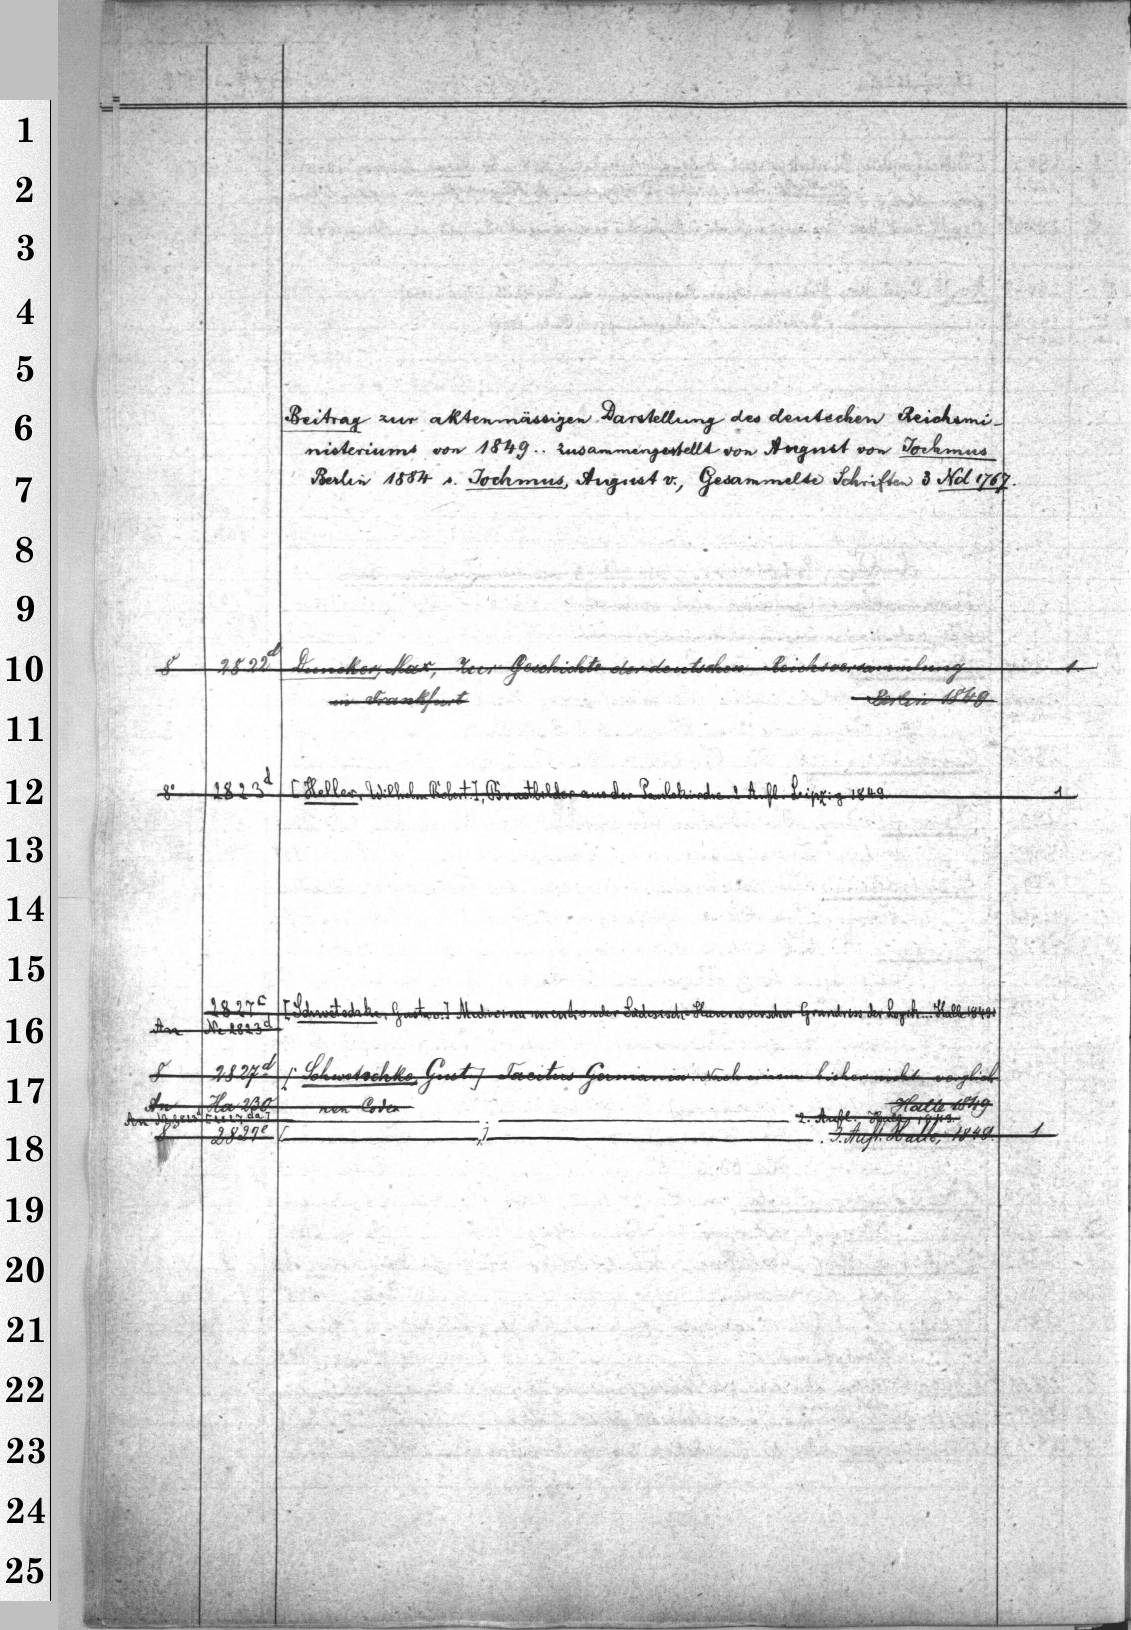 1
2
3
4
5
6
Beitrag zur aktenmässigen Darstellung des deutschen Reichsmi-
nisteriums von 1849.. zusammengestellt von August von Jochmus
7
Berlin 1884 s. Jochmus, August v., Gesammelte Schriften 3 Nd 1767.
8
9
10
8° 2822d Duncker, Max, Zur Geschichte der deutschen Reichsversammlung 1.
in Frankfurt Berlin 1849
11
12
8° 2823d [Heller, Wilhelm Robert], Brustbilder aus der Paulskirche. 2 Aufl. Leipzig 1849. 1
13
14
15
2827c [Schwetschke, Gustav.] Grundriss der Halle 1849
16
An Nc 2823d
8° 2827d [Schwetschke, Gust] Tacitus Germania. Nach einem bisher nicht verglich
17
An Ha 230 nen Codex Halle 1849
An 2. Aufl.
8° 2827e [ ] 3. Aufl. Halle, 1849. 1
18
19
20
21
22
23
24
25